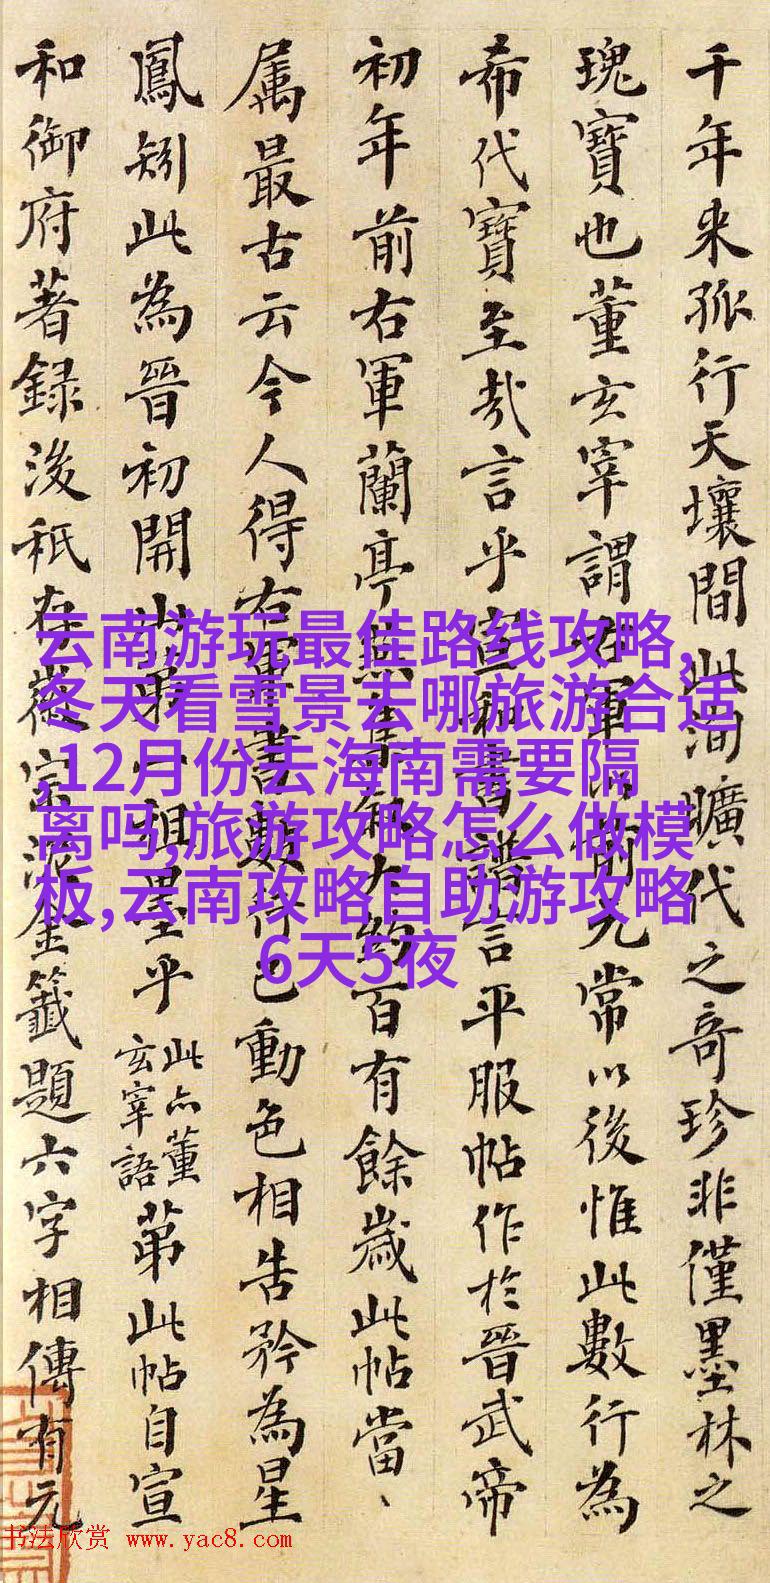 千年来孤行天壤間此洵曠代之奇珍非僅墨林之
瑰寶也董玄宰謂右軍以前元常以後惟此數行為
希代寶至哉言乎宣和書譜言平服帖作於晉武帝
初年前右軍蘭亭燕集大約百有餘歲此帖當、
属最古云今人得右軍書數行已動色相告矜為星
鳳矧此為晉初開山第一祖墨乎此亦董玄宰語苐此帖自宣
和御府著録後秖存徽宗泥金籤題六字相傳有元
云南游玩最佳路线攻略,
冬天看雪景去哪旅游合适
,12月份去海南需要隔
离吗,旅游攻略怎么做模
板,云南攻略自助游攻略
6天5夜
书法欣赏 www.yac8.com